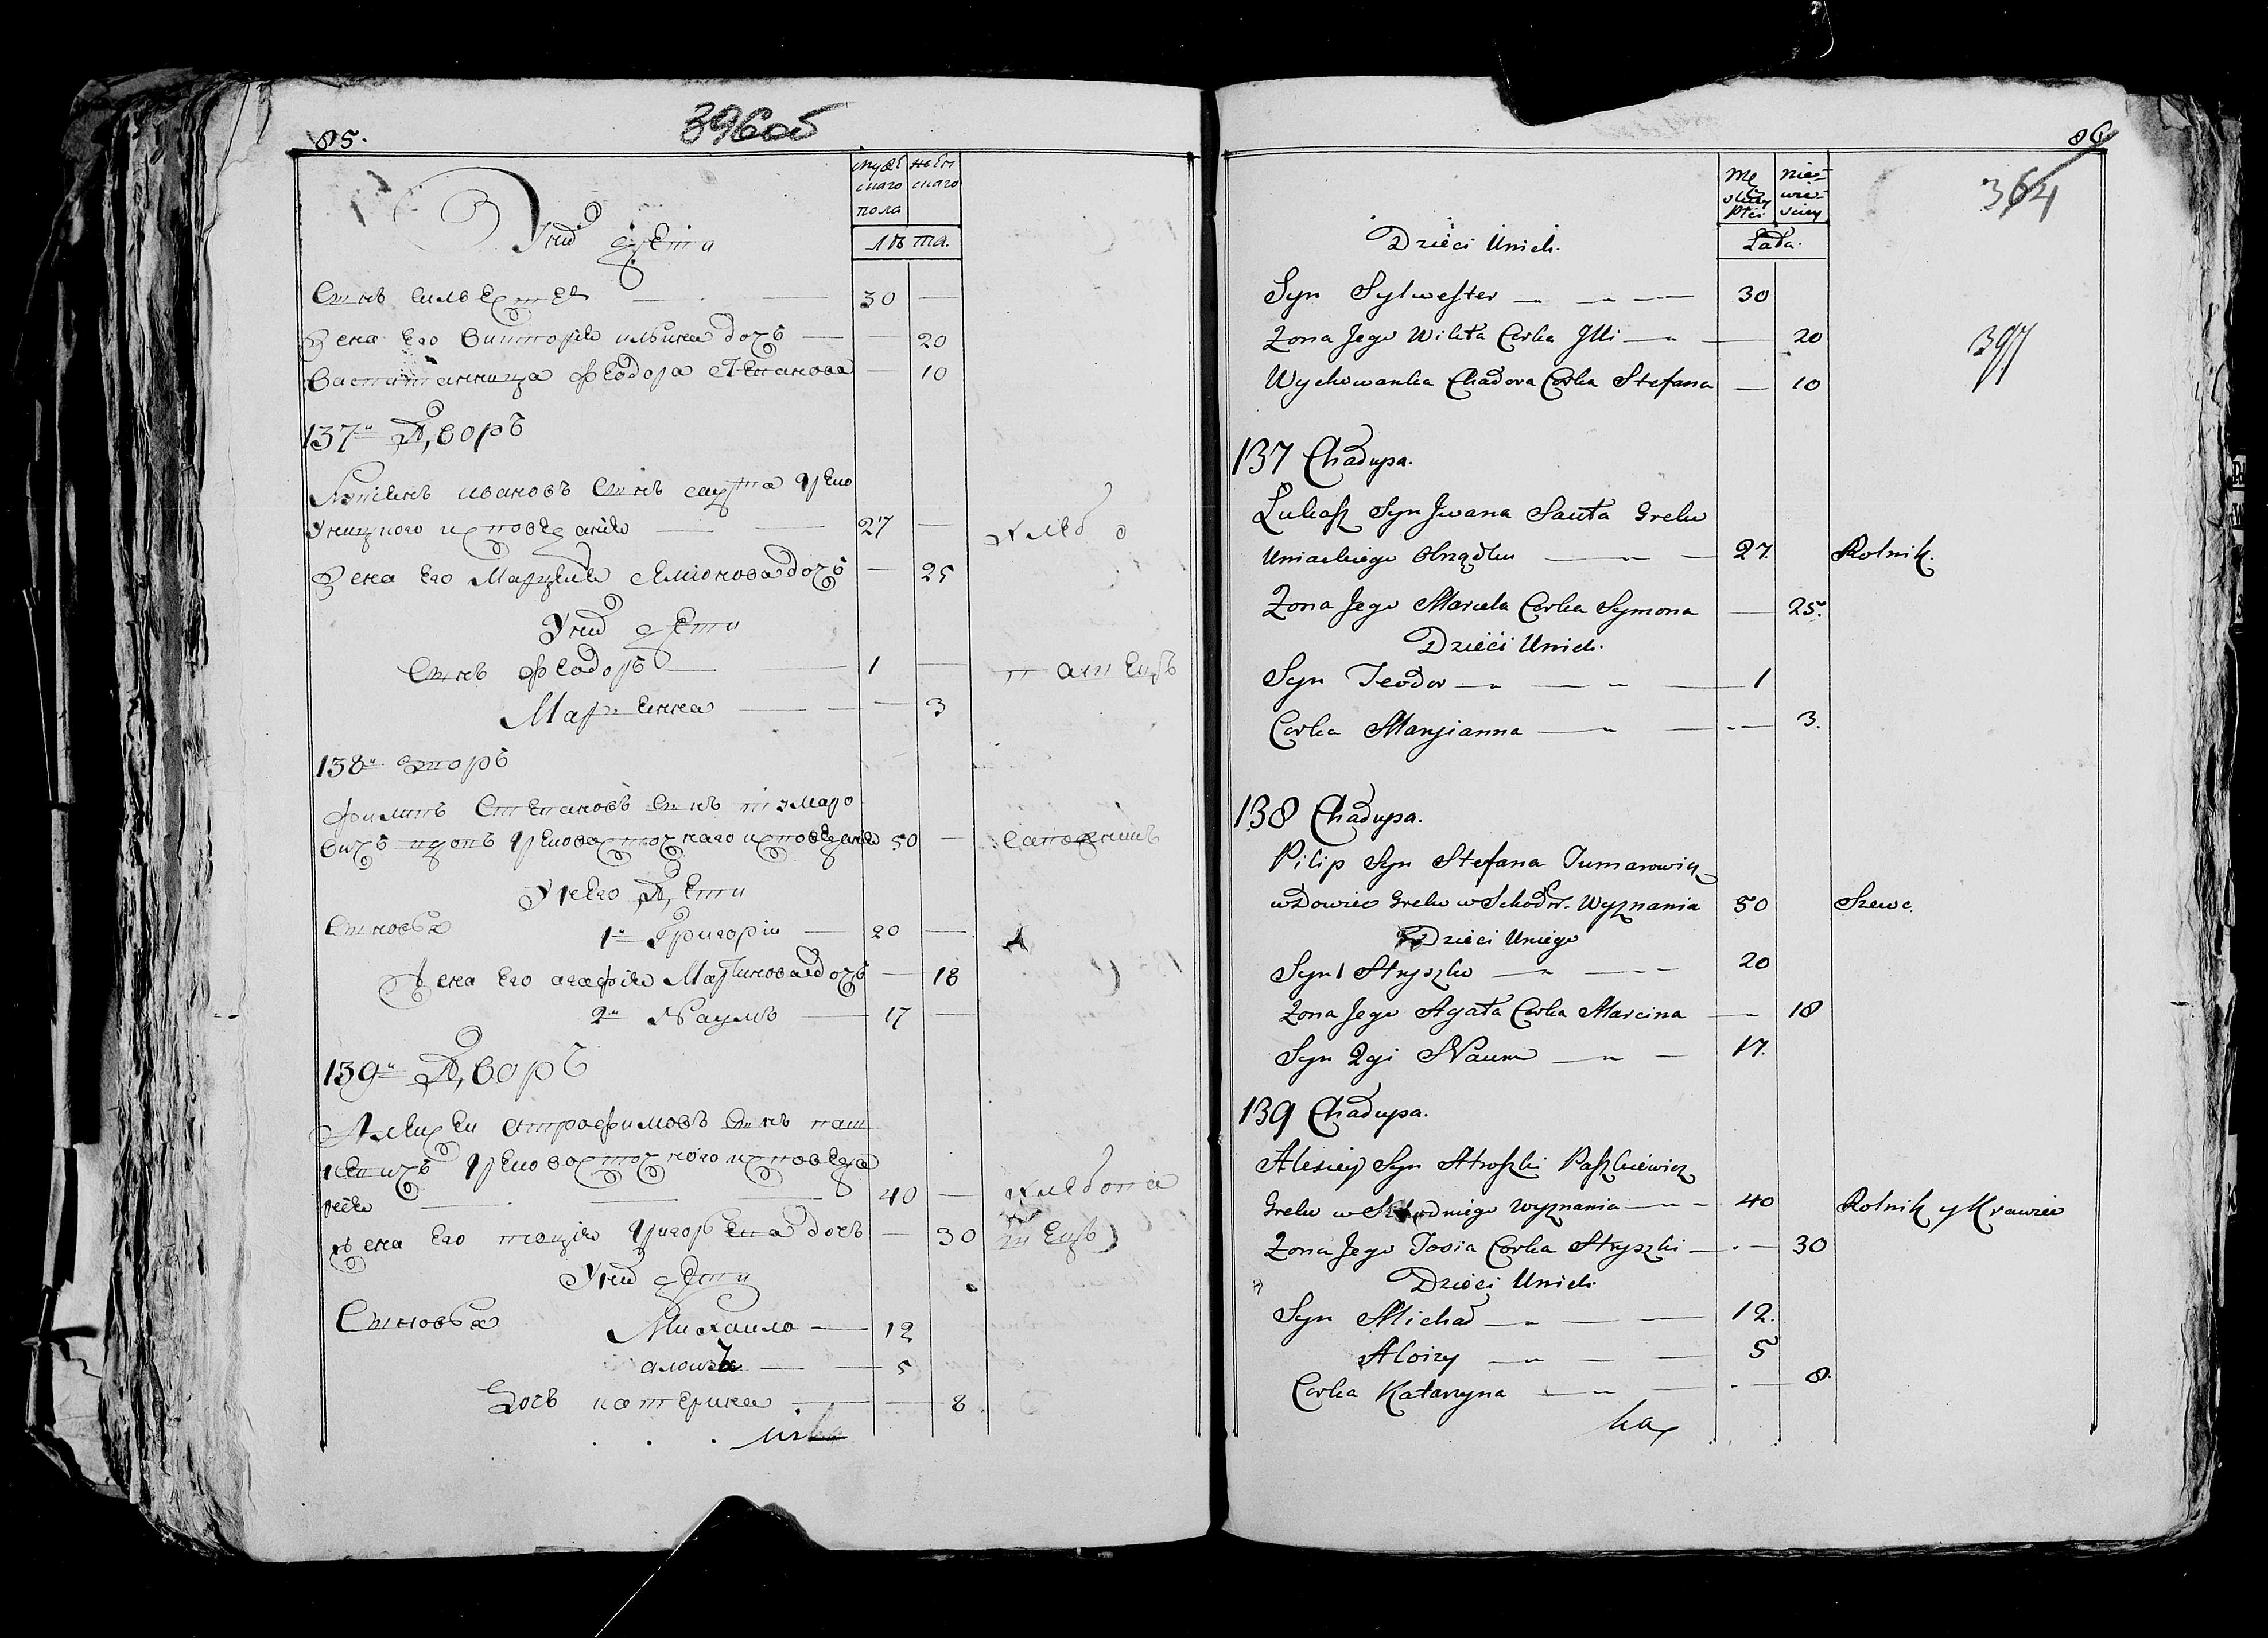 85.
396об
мужескаго пола
женскаго
Лѣта.
У нихъ дѣти
Сынъ Сильвестеръ — 30 —
Жена его Викторія Ильина дочь — — 20
Воспитанница Феодора Степанова — 10
137й Дворъ
Лукашъ Ивановъ сынъ Саута Греко
Уницкого исповеданія — 27 — хлебо
Жена его Марцеля Симонова дочь — 25
У нихъ дѣти
Сынъ Феодоръ — 1 — пашецъ
Марьянна — — 3
138й дворъ
Филипъ Степановъ сынъ Тумаро
вичъ вдовъ Грековосточнаго исповеданія 50 — сапожникъ
У него Дѣти
Сыновья 1й Григори — 20 —
Жена его Агафія Мартинова дочь — 18
2й Наумъ — 17 —
139й Дворъ
Алексеи Атрофимовъ сынъ Паш
кевичъ Грековосточного исповеда
нія — 40 — хлебопа
Жена его Тоція Григорьева дочь — 30 шецъ
У нихъ дѣти
Сыновья Михаило — 12
Алоизы — 5
Дочь Катерина — — 8
86
364
397
Męskiey Płci
niewieściey
Lata.
Dzieci Unich.
Syn Sylwester — 30
Zona Jego Wikta Corka Jlli — — 20
Wychowanka Chadora Corka Stefana — 10
137 Chałupa.
Łukasz Syn Jwana Sauta Greko
Uniackiego Obrządku — 27. Rolnik.
Zona Jego Marcela Corka Symona — 25.
Dzieci Unich.
Syn Teodor — 1
Corka Maryianna — — 3.
138 Chałupa.
Pilip Syn Stefana Tumarowicz
wdowiec Greko wSchodn. Wyznania 50 Szewc.
Dzieci Uniego
Syn 1 Hryszko — 20
Zona Jego Agata Corka Marcina — 18
Syn 2gi Naum — 17.
139 Chałupa.
Alexiey Syn Atroszki Paszkiewicz
Greko wSchodniego wyznania — 40 Rolnik y Krawiec
Zona Jego Tosia Corka Hryszki — 30
Dzieci Unich.
Syn Michał — 12.
Aloizy — 5
Corka Katarzyna — — 8.